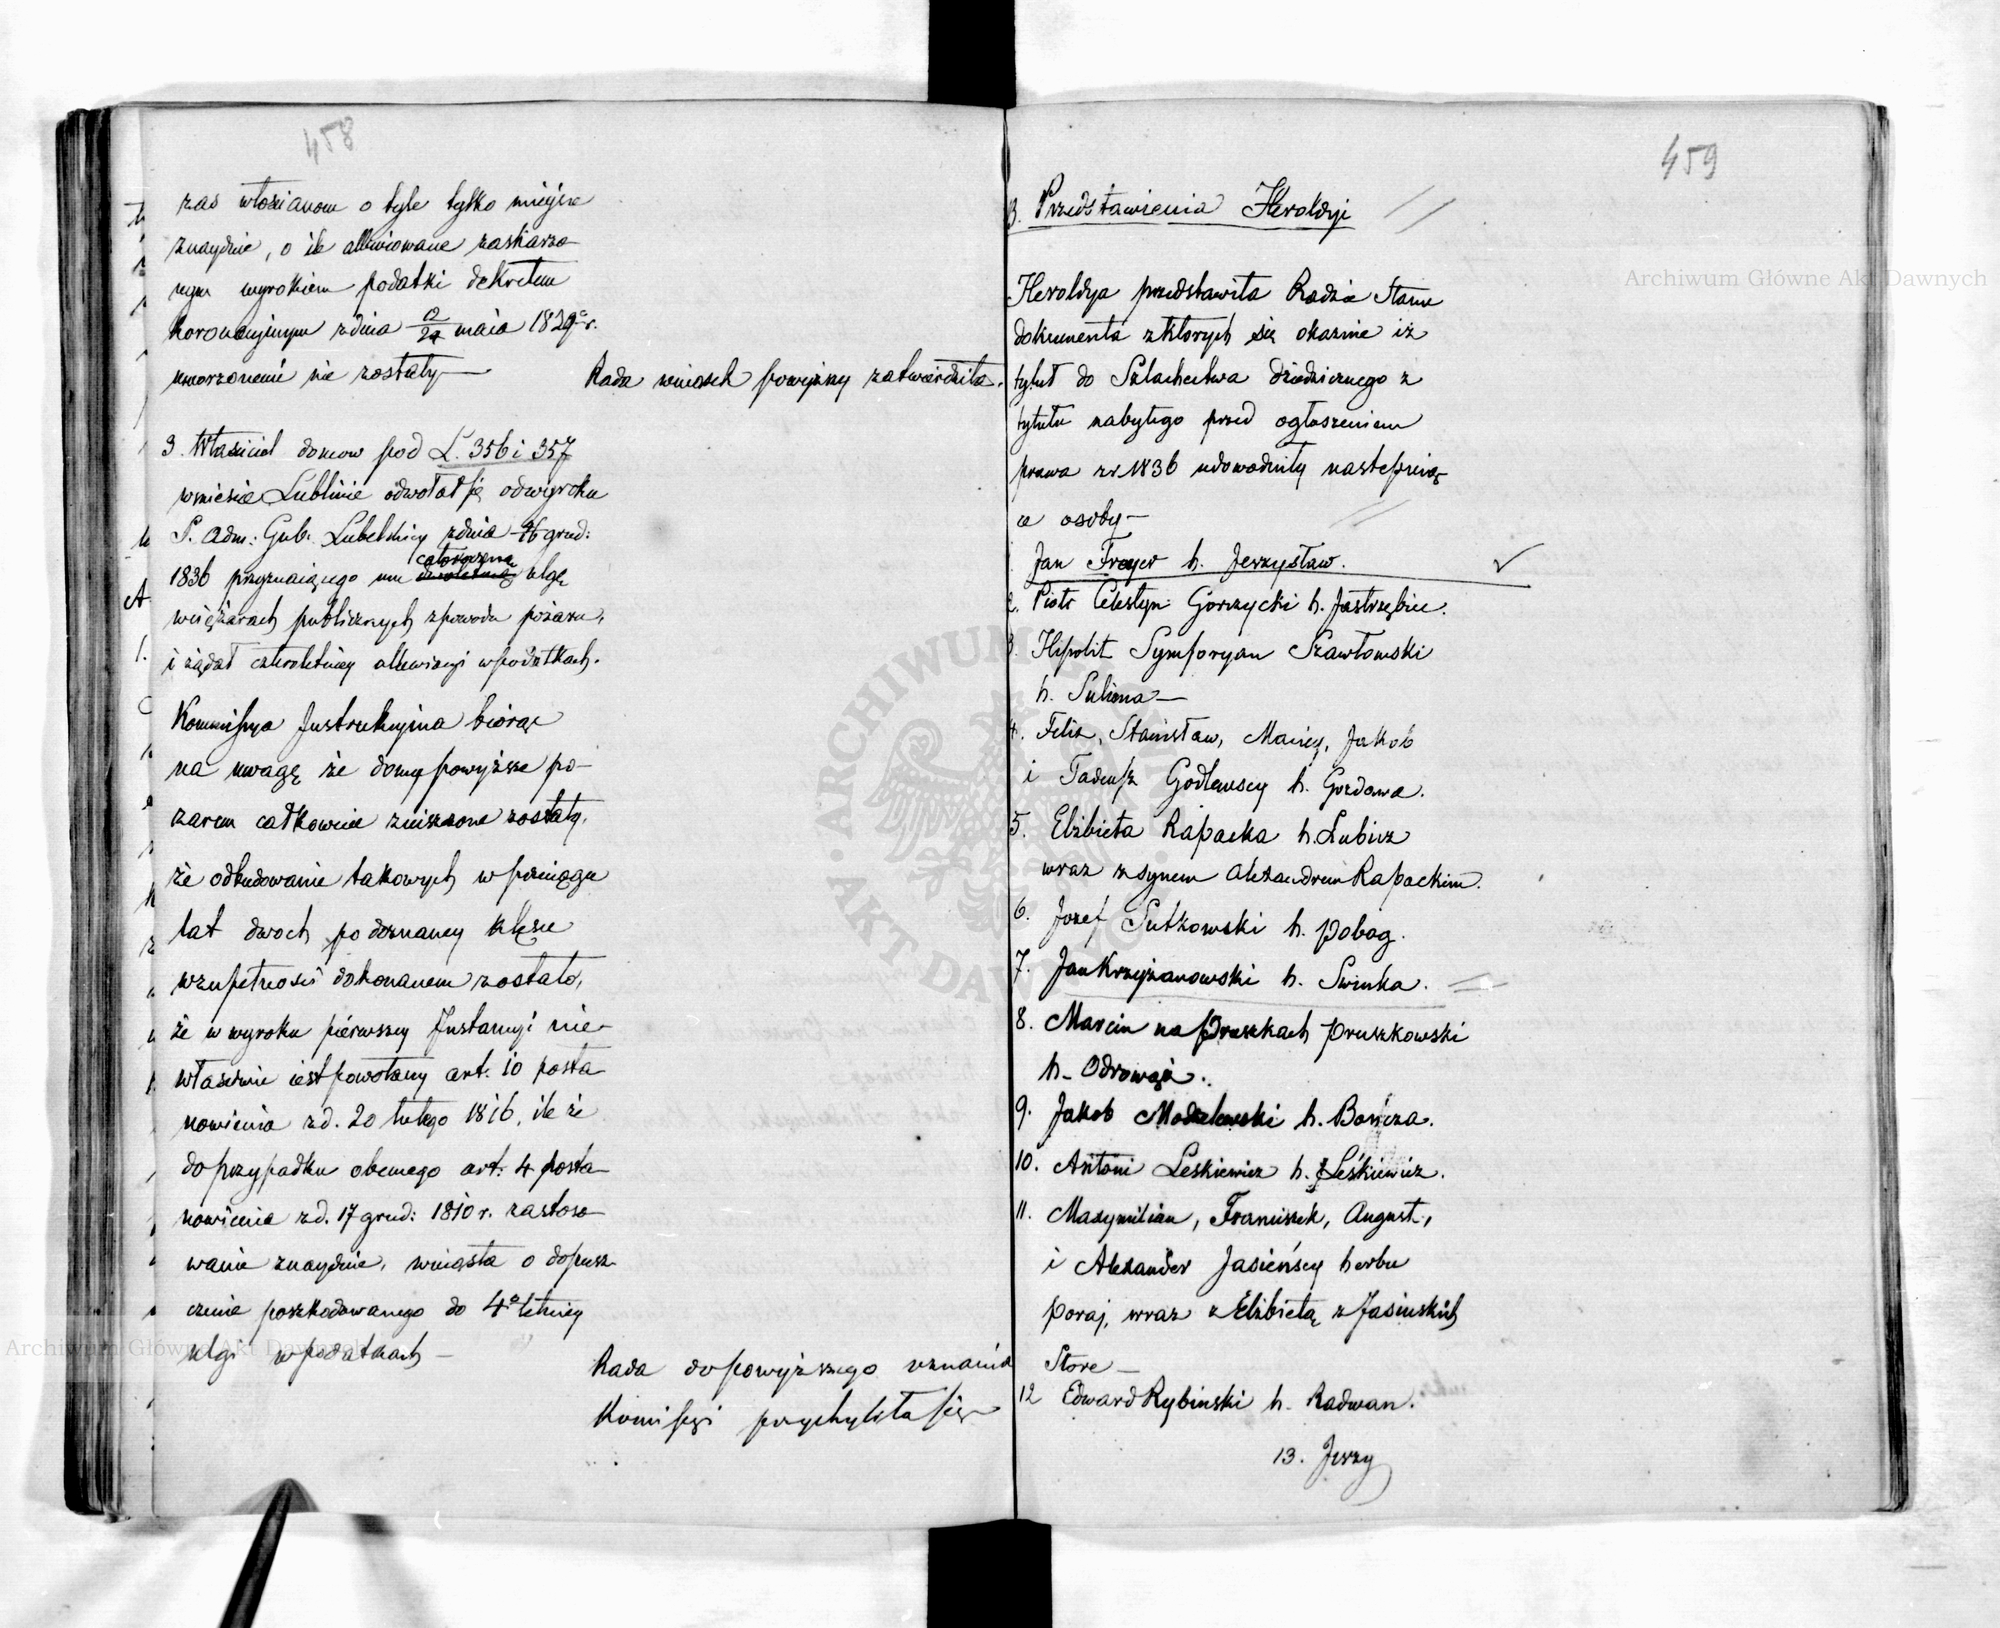 458
zas włoscianom o tyle tylko mieysce
znaydzie, o ile allewiowane zaskarżo-
nym wyrokiem podatki dekretem
koronacyjnym z dnia 12/24 maia 1829 r.
umorzonemi nie zostały —
Rada wniosek powyższy zatwierdziła.
3. Właściciel domow pod L. 356 i 357
w mieście Lublinie odwołał się od wyroku
P. Adm: Gub. Lubelskiey z dnia 16 grud:
1836 przyznaiącego mu ulgę
w ciężarach publicznych z powodu pożaru,
i żądał czteroletniey allewiacyi w podatkach.
Kommissya Instrukcyina biorąc
na uwagę że domy powyższe po-
żarem całkowicie zniszczone zostały,
że odbudowanie takowych w przeciągu
lat dwoch po doznaney klęsce
w zupełności dokonanem zostało,
że w wyroku pierwszey Instancyi nie-
właściwie iest powołany art. 10 posta-
nowienia z d. 20 lutego 1816, ile że
do przypadku obecnego art. 4 posta-
nowienia z d. 17 grud: 1810 r. zastoso-
wanie znaydzie, wniosła o dopusz-
czenie poszkodowanego do 4o letniey
ulgi w podatkach —
Rada do powyższego uznania
Komissyi przychyliła się
459
B. Przedstawienia Heroldyi
Heroldya przedstawiła Radzie Stanu
dokumenta z ktorych się okazuie iż
tytuł do Szlachectwa dziedzicznego z
tytułu nabytego przed ogłoszeniem
prawa z r. 1836 udowodniły nastepuią-
ce osoby —
Jan Freyer h. Jerzysław.
2. Piotr Celestyn Gorzycki h. Jastrzębiec.
3. Hipolit Symforyan Szawłowski
h. Sulima —
4. Felix, Stanisław, Maciey, Jakób
i Tadeusz Godlewscy h. Gozdawa.
5. Elżbieta Rapacka h. Lubicz
wraz z synem Alexandrem Rapackim.
6. Jozef Sutkowski h. Pobog.
7. Jan Krzyżanowski h. Swinka.
8. Marcin na Pruszkach Pruszkowski
h. Odrowąż.
9. Jakob Modzelewski h. Bończa.
10. Antoni Leskiewicz h. Leśkiewicz.
11. Maxymilian, Franciszek, August,
i Alexander Jasieńscy herbu
Poraj, wraz z Elżbietą z Jasinskich
Store —
12 Edward Rybinski h. Radwan.
13. Jerzy
Archiwum Główne Akt Dawnych
Archiwum Główne Akt Dawnych
ARCHIWUM
AKT DAWNYCH